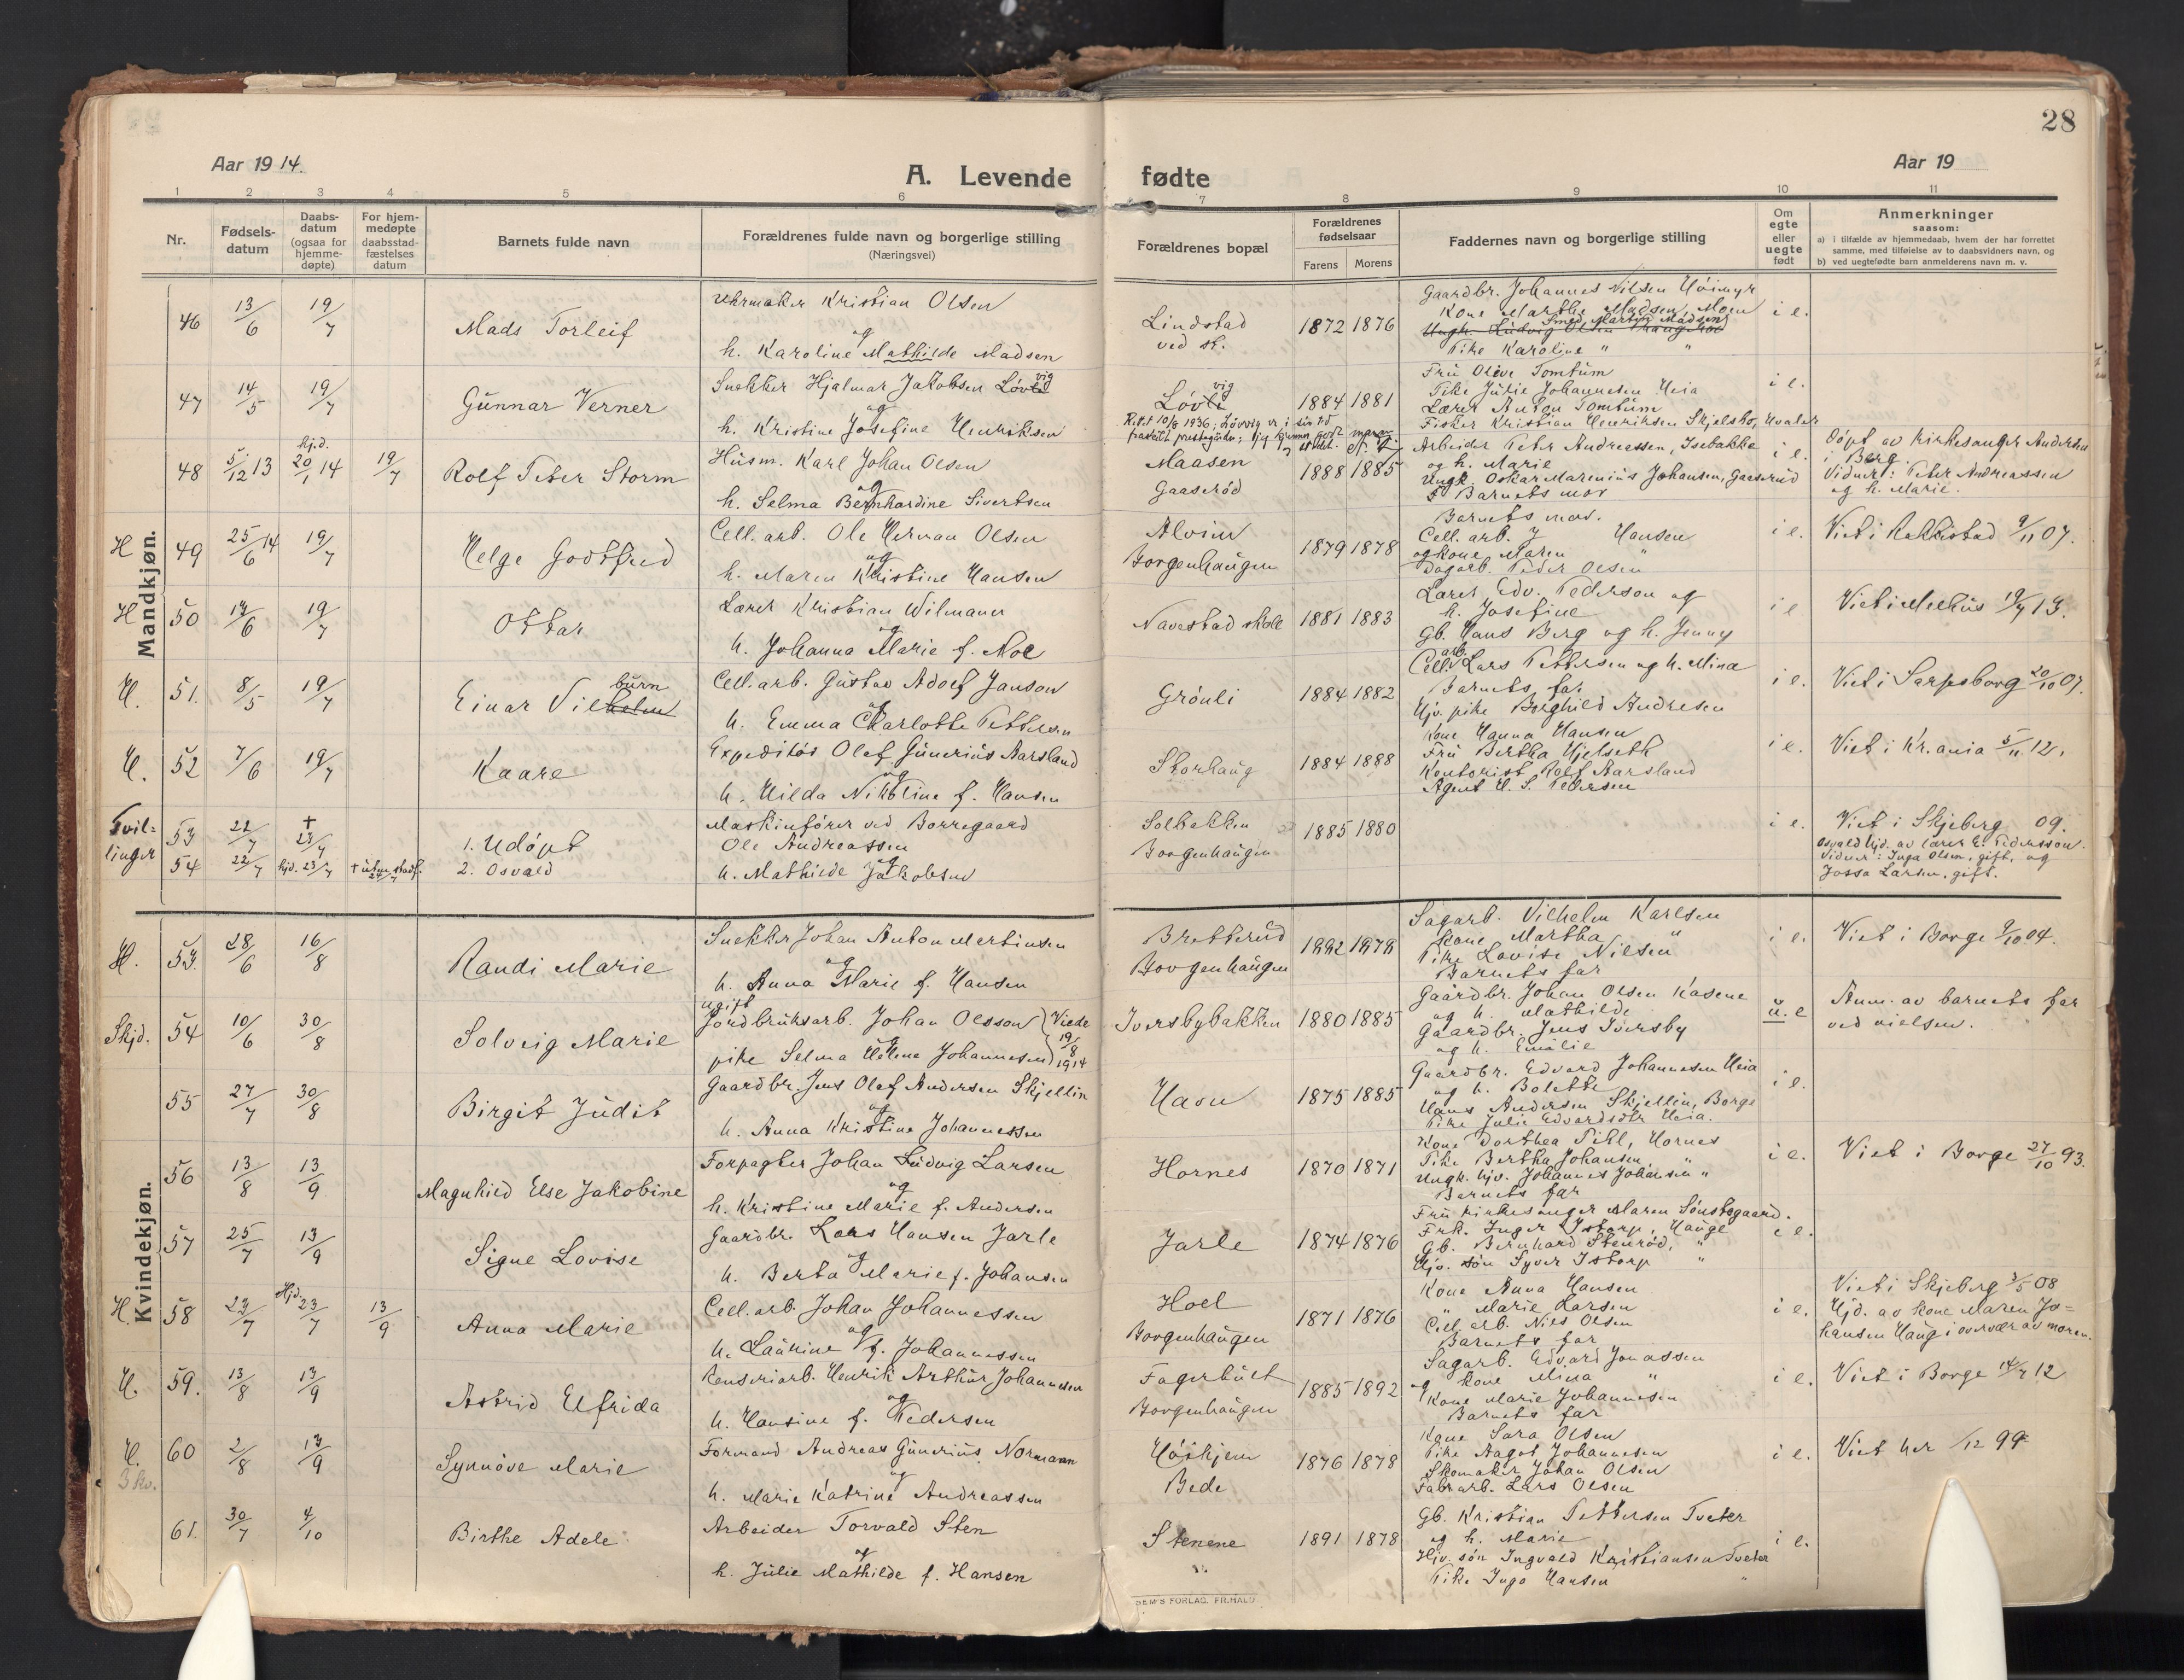 28
Aar 1914.
A. Levende fødte
Aar 19
1 2 3 4 5 6 7 8 9 10 11
Nr.
Fødsels-
datum
Daabs-
datum
(ogsaa for
hjemme-
døpte)
For hjem-
medøpte
daabsstad-
fæstelses
datum
Barnets fulde navn
Forældrenes fulde navn og borgerlige stilling
(Næringsvei)
Forældrenes bopæl
Forældrenes
fødselsaar
Farens Morens
Faddernes navn og borgerlige stilling
Om
egte
eller
uegte
født
Anmerkninger
saasom:
a) i tilfælde av hjemmedaab, hvem der har forrettet
samme, med tilføielse av to daabsvidners navn, og
b) ved uegtefødte barn anmelderens navn m. v.
Mandkjøn.
46 13/6 19/7 Mads Torleif
Uhrmaker Kristian Olsen
og
h. Karoline Mathilde Madsen
Lindstad
ved sk.
1872 1876
Gaardbr. Johannes Nilsen Høimyr
Kone Marthe Madsen, Moen
Smed Martin Madsen
Pike Karoline " "
i e.
47 14/5 19/7 Gunnar Verner
Snekker Hjalmar Jakobsen Løvvig
og
h. Kristine Josefine Henriksen
Løvvig
1884 1881
Fru Olive Tomtum
Pike Julie Johannesen Heia
Lærer Anton Tomtum
Fisker Kristian Henriksen Skjelsbo, Hvaler
i e.
48 5/12 13 hjd. 20/1 14 19/7 Rolf Peter Storm
Husm. Karl Johan Olsen
og
h. Selma Bernhardine Sivertsen
Maasen
Gaaserød
1888 1885
Arbeider Peter Andreassen, Isebakke
og h. Marie
Ungk. Oskar Marenius Johansen, Gaaserud
Barnets mor
i e.
Døpt av kirkesanger Andersen
i Berg.
Vidner: Peter Andreassen
og h. Marie.
H 49 25/6 14 19/7 Helge Godtfred
Cell. arb. Ole Herman Olsen
og
h. Maren Kristine Hansen
Alvim
Borgenhaugen
1879 1878
Barnets mor.
Cell. arb. J Hansen
og kone Maren "
Dagarb. Peder Olsen
i e.
Viet i Rakkestad 9/11 07.
H 50 14/6 19/7 Ottar
Lærer Kristian Wilmann
og
h. Johanna Marie f. Noe
Navestad skole
1881 1883
Lærer Edv. Pederson og
h. Josefine
Gb. Hans Berg og h. Jenny
i e
Viet i Melhus 19/7 13.
H. 51. 8/5 19/7 Einar Vilburn
Cell. arb. Gustav Adolf Janson
og
h. Emma Charlotte Pettersen
Grønli
1884 1882
Cell. arb. Lars Pettersen og h. Mina
Barnets far.
Hjv. pike Borghild Andresen
i e.
Viet i Sarpsborg 20/10 07.
H. 52 7/6 19/7 Kaare
Expeditør Olaf Gunerius Aarsland
og
h. Hilda Nikoline f. Hansen
Storhaug
1884 1888
Kone Hanna Hansen
Fru Bertha Hjelseth
Kontorist Rolf Aarsland
Agent H. S. Pedersen
i e.
Viet i Kr.ania 5/11 12.
Tvil-
linger
53 22/7 † 23/7 1. Udøpt
54 22/7 hjd. 23/7 2. Osvald
Maskinfører ved Borregaard
Ole Andreassen
og
h. Mathilde Jakobsen
Solbakken
Borgenhaugen
1885 1880
i e.
Viet i Skjeberg 09.
Osvald hjd. av lærer E. Pedersson.
Vidner: Inga Olsen, gift, og
Jossa Larsen, gift.
Kvindekjøn.
H. 53. 28/6 16/8 Randi Marie
Snekker Johan Anton Martinsen
og
h. Anna Marie f. Hansen
Bretterud
Borgenhaugen
1882 1878
Sagarb. Vilhelm Karlsen
Kone Martha "
Pike Lovise Nilsen
Barnets far
i e.
Viet i Borge 9/10 04.
Skjd. 54 10/6 30/8 Solveig Marie
ugift
Jordbruksarb. Johan Olsson
og
pike Selma Helene Johannesen
Viede
19/8
1914
Iversbybakken
1880 1885
Gaardbr. Johan Olsen Kasene
og h. Mathilde
Gaardbr. Jens Iversby
og h. Emilie
u. e
Anm. av barnets far
ved vielsen.
55 27/7 30/8 Birgit Judit
Gaardbr. Jens Olaf Andersen Skjellin
og
h. Anna Kristine Johannessen
Havn
1875 1885
Gaardbr. Edvard Johannesen Heia
og h. Bolette
Hans Andersen Skjellin, Borge
Pike Julie Edvardsdtr Heia.
i e.
56 13/8 13/9 Magnhild Else Jakobine
Forpagter Johan Ludvig Larsen
og
h. Kristine Marie f. Andersen
Hornes
1870 1871
Kone Dorthea Pihl, Hornes
Pike Bertha Johansen "
Ungk. hjv. Johannes Johansen "
Barnets far
i e.
Viet i Borge 27/10 93.
57 25/7 13/9 Signe Lovise
Gaardbr. Lars Hansen Jarle
og
h. Berta Marie f. Johansen
Jarle
1874 1876
Fru kirkesanger Maren Sønstegaard.
Frk. Inger Istorp, Hauge
Gb. Bernhard Stenrød, "
Hjv. søn Syver Istorp "
i e.
H. 58 23/7 Hjd. 23/7 13/9 Anna Marie
Cell. arb. Johan Johannessen
og
h. Laurine f. Johannessen
Hoel
Borgenhaugen
1871 1876
Kone Anna Hansen
" Marie Larsen
Cell. arb. Nils Olsen
Barnets far
i e.
Viet i Skjeberg 3/5 08
Hjd. av kone Maren Jo=
hansen Haug i overvær av moren.
H. 59. 13/8 13/9 Astrid Elfrida
Renseriarb. Henrik Arthur Johannesen
og
h. Hansine f. Pedersen
Fagerhult
Borgenhaugen
1885 1892
Sagarb. Edvard Jonassen
og kone Mina "
Kone Marie Johannesen
Barnets far
i e.
Viet i Borge 14/7 12
H. 3 kv. 60 2/8 13/9 Synnøve Marie
Formand Andreas Gunerius Normann
og
h. Marie Katrine Andreassen
Høiskjem
Bede
1876 1878
Kone Sara Olsen
Pike Aagot Johannesen
Skomaker Johan Olsen
Fabr. arb. Lars Olsen
i e.
Viet her /12 99
61. 30/7 4/10 Birthe Adele
Arbeider Torvald Sten
og
h. Julie Mathilde f. Hansen
Stenene
1891 1878
Gb. Kristian Pettersen Tveter
og h. Marie
Hjv. søn Ingvald Kristiansen Tveter
Pike Inga Hansen "
i e.
SEM'S FORLAG. FR.HALD